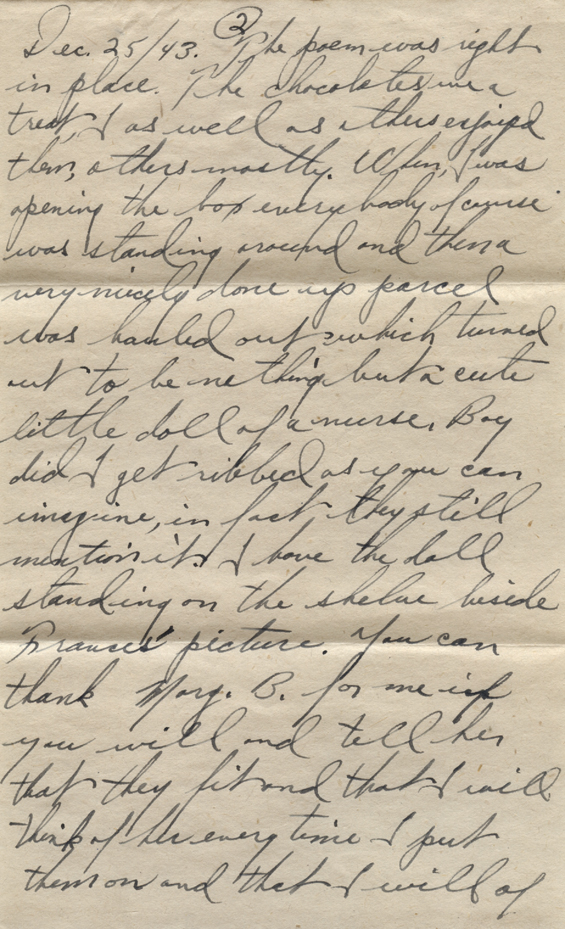 Dec. 25/43. (2) The poem was right
in place. The chocolates were a
treat, I as well as others enjoyed
them, others mostly. When, I was
opening the box everybody of course
was standing around and then a
very nicely done up parcel
was hauled out which turned
out to be nothing but a cute
little doll of a nurse, Boy
did I get ribbed as you can
imagine, in fact they still
mention it. I have the doll
standing on the shelve beside
Frances' picture. You can
thank Marg. B. for me if
you will and tell her
that they fit and that I will
think of her every time I put
them on and that I will of